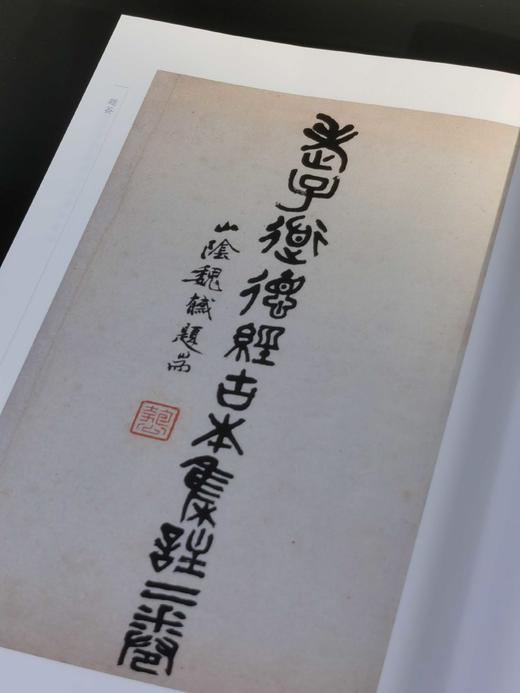 老子道德經古本集註二卷
山陰魏戫題耑